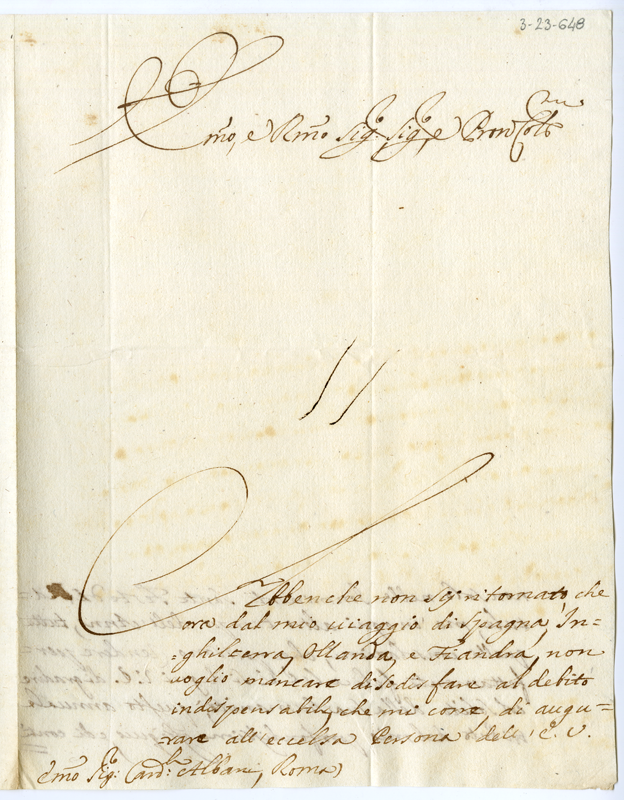 3-23-648
Emo, e Rmo Sig.r Sig.r, e Pron Colmo
Ebbenche non sij ritornato, che
ora dal mio viaggio di Spagna, In=
=ghilterra, Ollanda, e Fiandra, non
voglio mancare di sodisfare al debito
indispensabile, che mi corre di augu=
=rare all' eccelsa Persona dell' E. V.
Emo Sig.r Card.l Albani, Roma